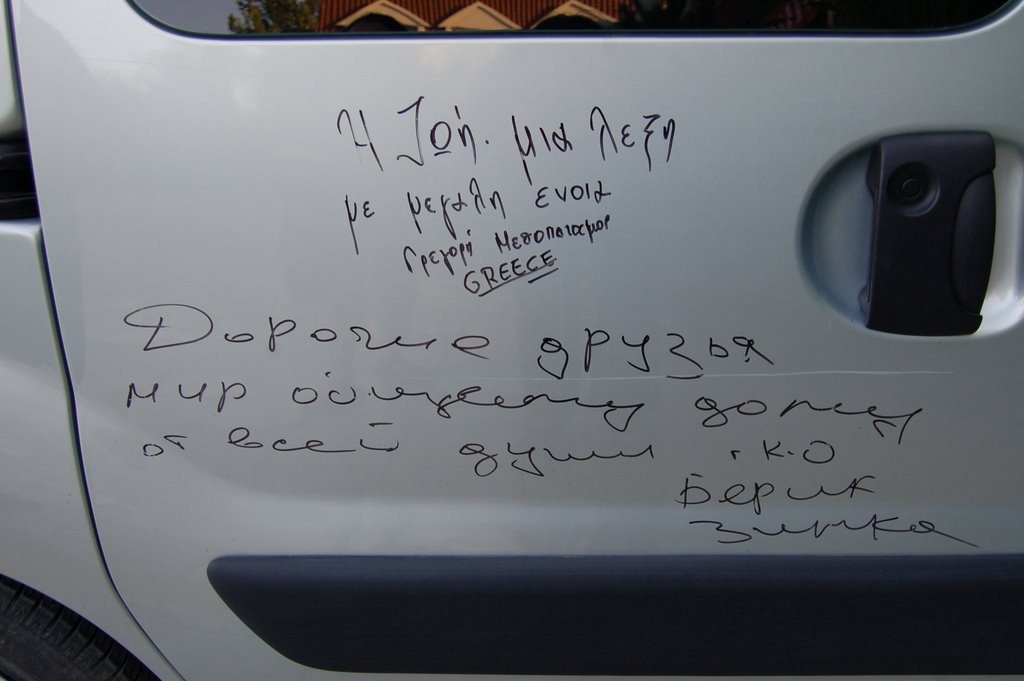 Η Ζωή. μια λεξη
με μεγαλη ενοια
Γρεγορη Μεσοποταμοσ
GREECE
Дорогие друзья
мир общему дому
от всей души г.К.О
Берик
Зинка